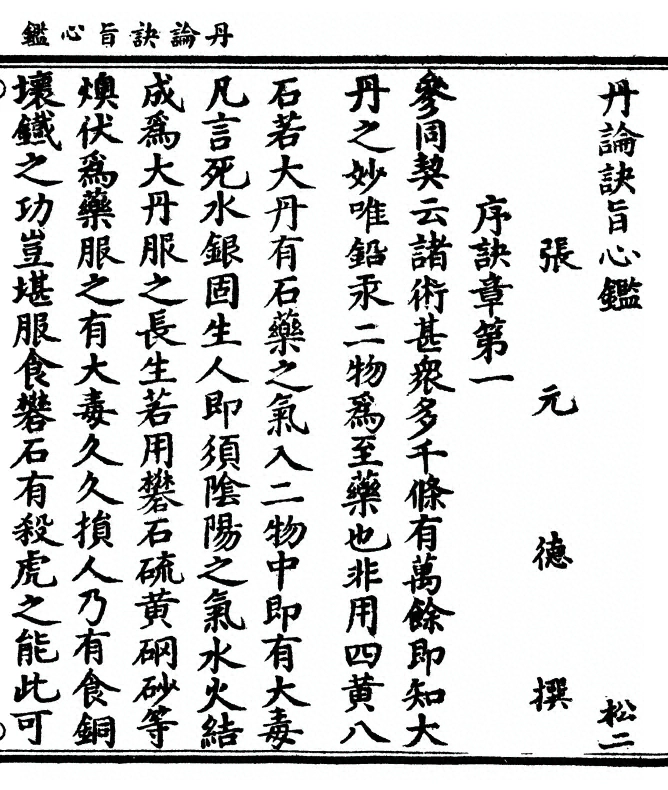 丹論訣旨心鑑
丹論訣旨心鑑 松二
張元德撰
序訣章第一
參同契云諸術甚衆多千條有萬餘即知大
丹之妙唯鉛汞二物爲至藥也非用四黃八
石若大丹有石藥之氣入二物中即有大毒
凡言死水銀固生人即須陰陽之氣水火結
成爲大丹服之長生若用礬石硫黃硇砂等
燠伏爲藥服之有大毒久久損人乃有食銅
壞鐵之功豈堪服食礬石有殺虎之能此可